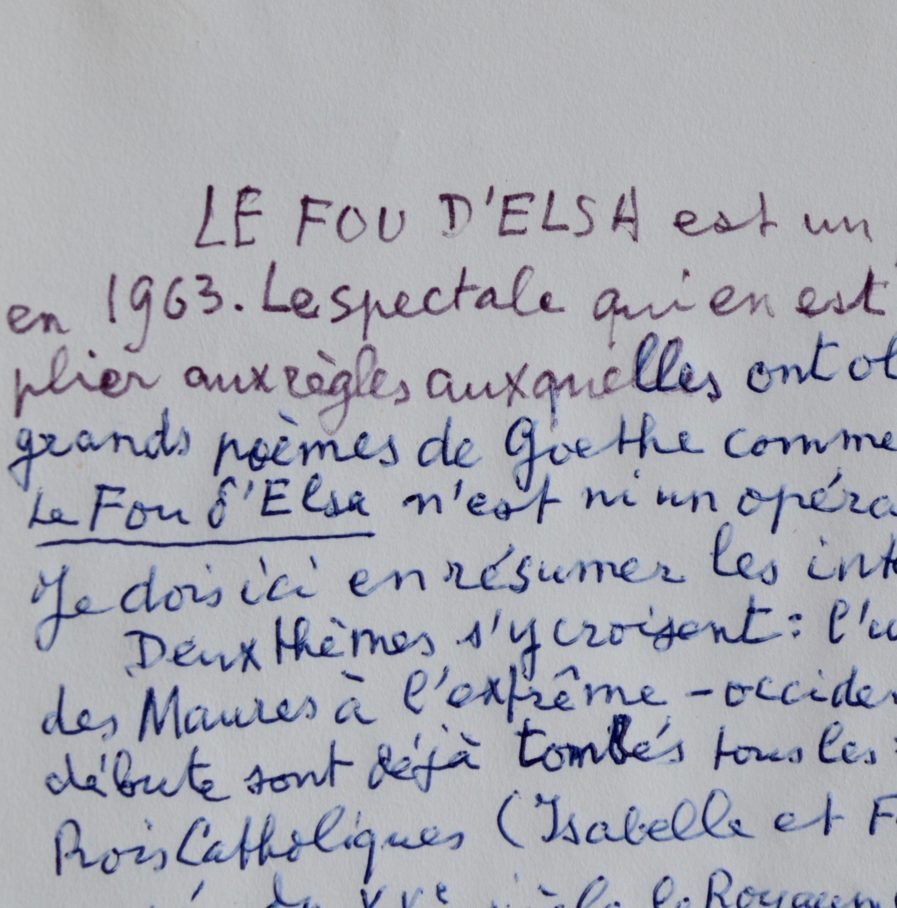 LE FOU D'ELSA est un
en 1963. Le spectale qui en est
plier aux règles auxquelles ont ob
grands poèmes de Goethe comme
Le Fou d'Elsa n'est ni un opéra
Je dois ici en résumer les int
Deux thèmes s'y croisent : l'u
des Maures à l'extrême-occiden
débute sont déjà tombés tous les
Rois Catholiques (Isabelle et F
du XVe siècle le Royaum